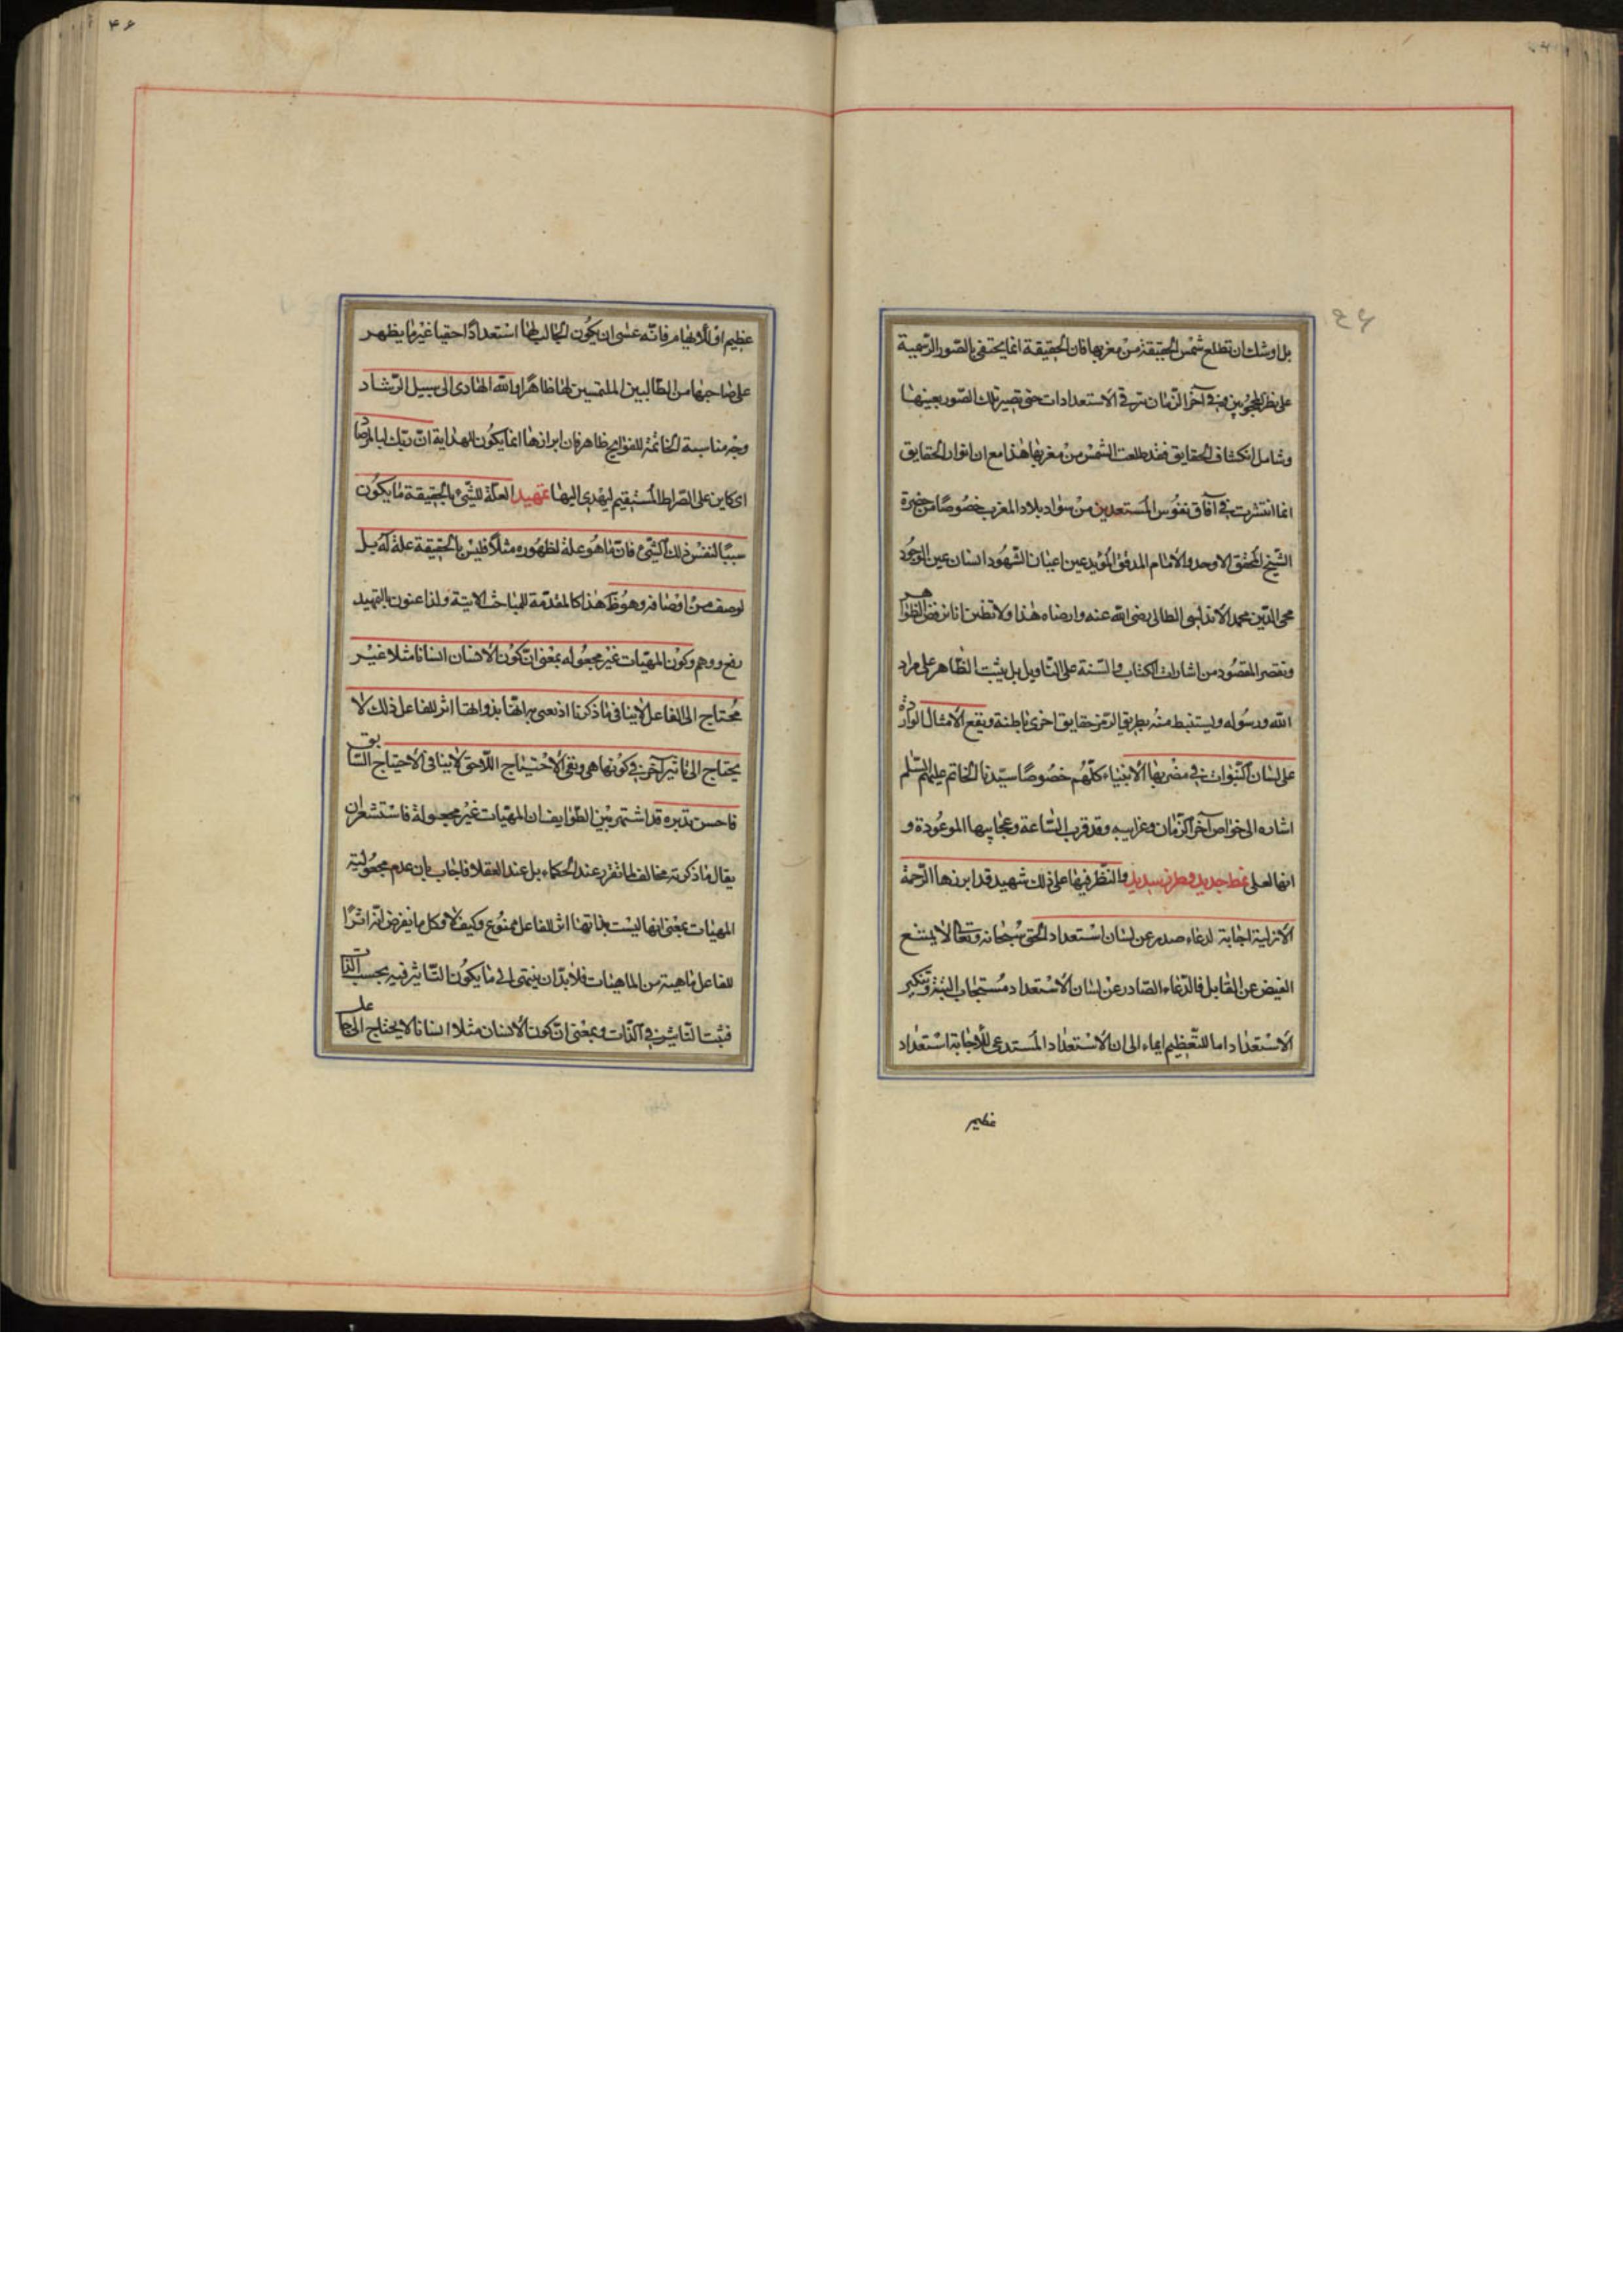 بل اوشك ان تطلع شمس الحقيقة من مغربها فان الحقيقة انما يختفى بالصور الرسمية
على نظر المحجوبين و فى آخر الزمان يترقى الاستعدادات حتى تصير تلك الصور بعينها
وشامل انكشاف الحقايق فقد طلعت الشمس من مغربها هذا مع ان انوار الحقايق
انما انتشرت فى آفاق نفوس المستعدين من سواد بلاد المغرب خصوصًا من حضرة
الشيخ المحقق الاوحد والامام المدقق المؤيد عين اعيان الشهود انسان عين الوجود
محى الدين محمد الاندلسى الطائى رضى الله عنه وارضاه هذا ولا تظنن انا نرفض الظواهر
ونقصر المقصود من اشارات الكتاب والسنة على التاويل بل يثبت الظاهر على مراد
الله ورسوله ويستنبط منه بطريق الرمز حقايق اخرى باطنة ويقع الامثال الواردة
على لسان النبوات فى مضربها الانبياء كلهم خصوصًا سيدنا الخاتم عليهم السلم
اشاره الى خواص آخر الزمان وغرايبه وقد قرب الساعة وعجايبها الموعودة و
انها لعلى نمط جديد وطرز سديد والنظر فيها على ذلك شهيد قد ابرزها الرحمة
الازلية اجابة لدعاء صدر عن لسان استعداد الحق سبحانه وتعالى لا يمتنع
الفيض عن القابل فالدعاء الصادر عن لسان الاستعداد مستجاب البتة وتنكير
الاستعداد اما للتعظيم ايماء الى ان الاستعداد المستدعى للاجابة استعداد
عظيم
۴۶
عظيم او للابهام فانه عسى ان يكون الجالب لها استعدادًا خفيا غير ما يظهر
على صاحبها من الطالبين الملتمسين لها ظاهرًا والله الهادى الى سبيل الرشاد
وجه مناسبة الخاتمة للفواتح ظاهر فان ابرازها انما يكون لهداية ان ربك لبالمرصاد
اى كاين على الصراط المستقيم ليهدى اليها تمهيد العلة للشئ بالحقيقة ما يكون
سببًا لنفس ذلك الشئ فان ما هو علة لظهوره مثلًا فليس بالحقيقة علة له بل
لوصف من اوصافه وهو ظ هذا كالمقدمة للمباحث الاتية ولذا عنون بالتمهيد
رفع ووهم وكون المهيات غير مجعوله بمعنى ان كون الانسان انسانا مثلا غير
محتاج الى الفاعل لا ينافى ما ذكرنا اذ نعنى به انها بذواتها اثر للفاعل ذلك لا
يحتاج الى تاثير آخر فى كونها هى ونفى الاحتياج اللاحق لا ينافى الاحتياج السابق
فاحسن تدبره قد اشتهر بين الطوايف ان المهيات غير مجعولة فاستشعر ان
يقال ما ذكرته مخالف لما تقرر عند الحكماء بل عند العقلا فاجاب بان عدم مجعولية
المهيات بمعنى انها ليست بذاتها اثر للفاعل ممنوع وكيف لا وكل ما يفرض انه اثرًا
للفاعل ماهية من الماهيات فلا بد ان ينتهى الى ما يكون التاثير فيه بحسب الذات
فثبت التاثير فى الذات وبمعنى ان كون الانسان مثلا انسانا لا يحتاج الى جاعل